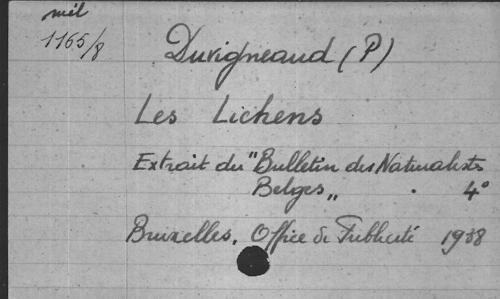 mél
1165/8
Duvigneaud (P)
Les Lichens
Extrait du "Bulletin des Naturalists
Belges„ . 4°
Bruxelles, Office de Publicité 1938